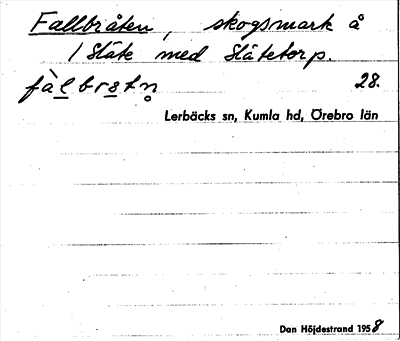 Fallbråten, skogsmark å
1 Slåte med Slåtetorp.
28.
Lerbäcks sn, Kumla hd, Örebro län
Dan Höjdestrand 1958